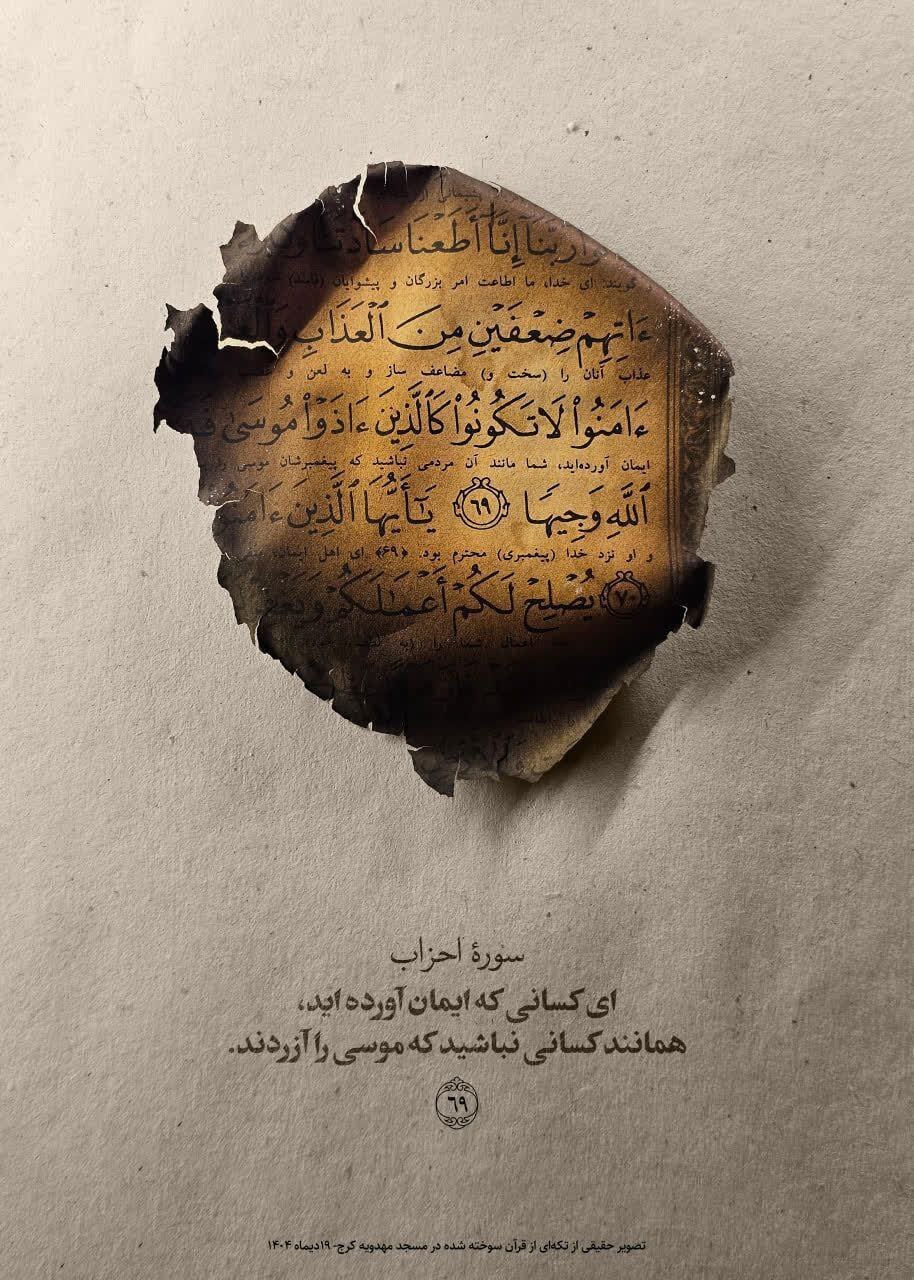 رَبَّنَآ إِنَّآ أَطَعْنَا سَادَتَنَا
گویند: ای خدا، ما اطاعت امر بزرگان و پیشوایان (فاسد)
ءَاتِهِمْ ضِعْفَيْنِ مِنَ ٱلْعَذَابِ
عذاب آنان را (سخت و) مضاعف ساز و به لعن و
ءَامَنُوا۟ لَا تَكُونُوا۟ كَٱلَّذِينَ ءَاذَوْا۟ مُوسَىٰ
ایمان آورده‌اید، شما مانند آن مردمی نباشید که پیغمبرشان موسی را
ٱللَّهِ وَجِيهًا ٦٩ يَٰٓأَيُّهَا ٱلَّذِينَ
و او نزد خدا (پیغمبری) محترم بود. ﴿۶۹﴾ ای اهل ایمان،
٧٠ يُصْلِحْ لَكُمْ أَعْمَٰلَكُمْ
اعمال شما را
سورهٔ احزاب
ای کسانی که ایمان آورده اید،
همانند کسانی نباشید که موسی را آزردند.
٦٩
تصویر حقیقی از تکه‌ای از قرآن سوخته شده در مسجد مهدویه کرج- ۱۹دیماه ۱۴۰۴